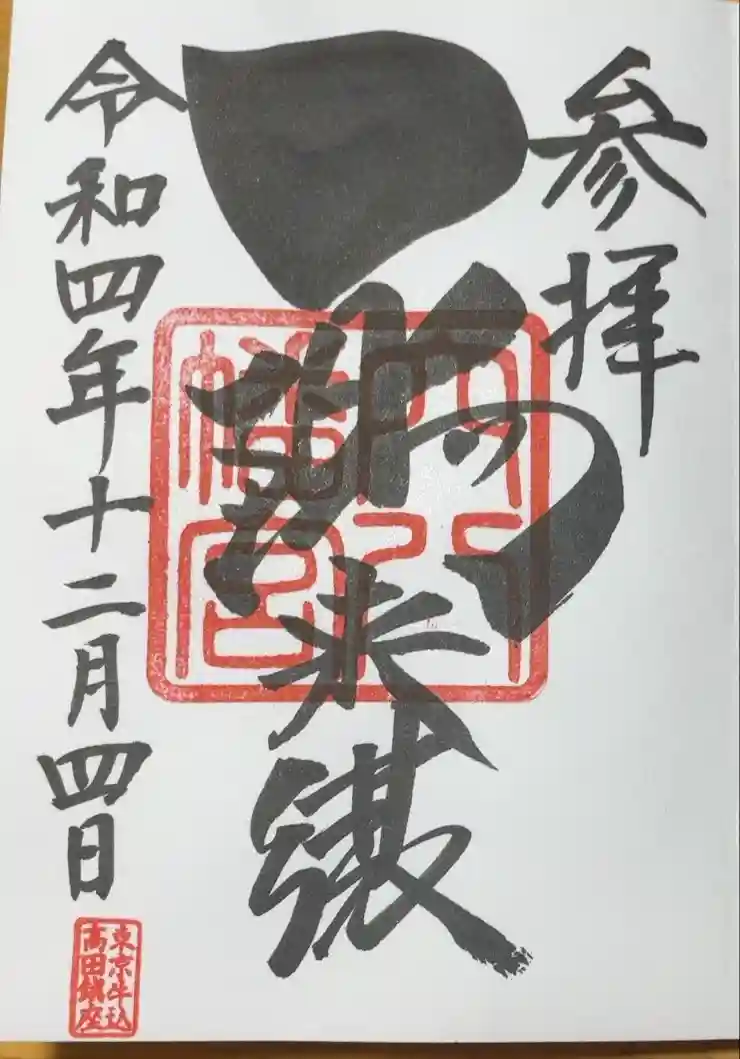 参拝
一陽来復
穴八
幡宮
令和四年十二月四日
東京牛込
高田鎮座